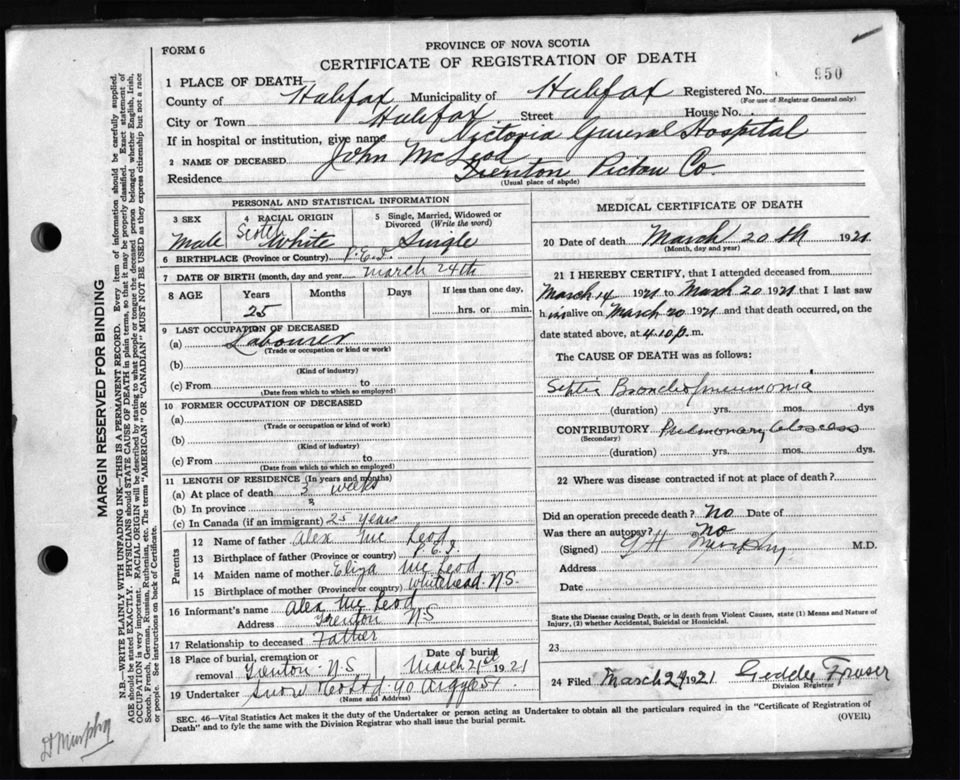 FORM 6
PROVINCE OF NOVA SCOTIA
CERTIFICATE OF REGISTRATION OF DEATH
950
1 PLACE OF DEATH—
County of Halifax Municipality of Halifax Registered No.
(For use of Registrar General only)
City or Town Halifax Street House No.
If in hospital or institution, give name Victoria General Hospital
2 NAME OF DECEASED John McLeod
Residence Trenton Pictou Co.
(Usual place of abode)
PERSONAL AND STATISTICAL INFORMATION
3 SEX Male
4 RACIAL ORIGIN Scotch White
5 Single, Married, Widowed or Divorced (Write the word) Single
6 BIRTHPLACE (Province or Country) P.E.I.
7 DATE OF BIRTH (month, day and year) March 24th
8 AGE Years Months Days If less than one day,
25 hrs. or min.
9 LAST OCCUPATION OF DECEASED
(a) Labourer
(Trade or occupation or kind or work)
(b)
(Kind of industry)
(c) From to
(Date from which to which so employed)
10 FORMER OCCUPATION OF DECEASED
(a)
(Trade or occupation or kind of work)
(b)
(Kind of industry)
(c) From to
(Date from which to which so employed)
11 LENGTH OF RESIDENCE (In years and months)
(a) At place of death 3 weeks
(b) In province "
(c) In Canada (if an immigrant) 25 years
Parents
12 Name of father Alex McLeod
13 Birthplace of father (Province or country) P.E.I.
14 Maiden name of mother Eliza McLeod
15 Birthplace of mother (Province or country) Whitehead N.S.
16 Informant's name Alex McLeod
Address Trenton NS
17 Relationship to deceased Father
18 Place of burial, cremation or removal Trenton N.S Date of burial March 21st 1921
19 Undertaker Snow & Co Ltd 90 Argyle St
(Name and Address)
MEDICAL CERTIFICATE OF DEATH
20 Date of death March 20th 1921
(Month, day and year)
21 I HEREBY CERTIFY, that I attended deceased from
March 14 1921 to March 20 1921 that I last saw
him alive on March 20 1921 and that death occurred, on the
date stated above, at 4.10 p. m.
The CAUSE OF DEATH was as follows:
Septic Bronchopneumonia
(duration) yrs. mos. dys
CONTRIBUTORY Pulmonary Abscess
(Secondary)
(duration) yrs. mos. dys.
22 Where was disease contracted if not at place of death?
Did an operation precede death? No Date of
Was there an autopsy? No
(Signed) Murphy M.D.
Address
Date
State the Disease causing Death, or in death from Violent Causes, state (1) Means and Nature of
Injury, (2) whether Accidental, Suicidal or Homicidal.
23
24 Filed March 24 1921 Geddes Fraser
Division Registrar
SEC. 46—Vital Statistics Act makes it the duty of the Undertaker or person acting as Undertaker to obtain all the particulars required in the "Certificate of Registration of
Death" and to fyle the same with the Division Registrar who shall issue the burial permit.
(OVER)
MARGIN RESERVED FOR BINDING
N.B.—WRITE PLAINLY WITH UNFADING INK—THIS IS A PERMANENT RECORD. Every item of information should be carefully supplied.
AGE should be stated EXACTLY. PHYSICIANS should STATE CAUSE OF DEATH in plain terms, so that it may be properly classified. Exact statement of
OCCUPATION is very important. RACIAL ORIGIN will be described by stating to what people or tongue the deceased person belonged whether English, Irish,
Scotch, French, German, Russian, Ruthenian, etc. The terms "AMERICAN" OR "CANADIAN" MUST NOT BE USED as they express citizenship but not a race
or people. See instructions on back of Certificate.
Dr Murphy